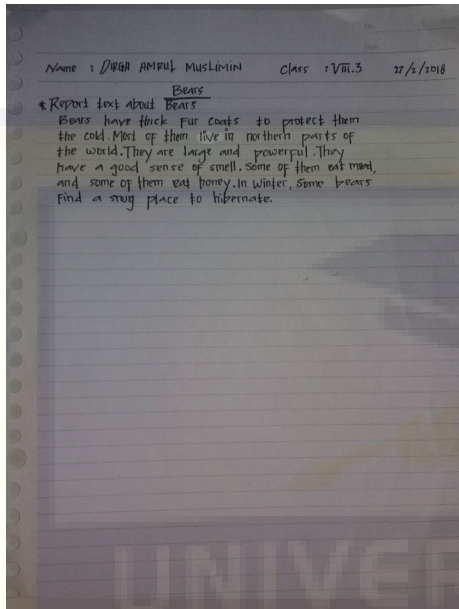 Name : DIRGA AMRUL MUSLIMIN Class : VIII.3 27/2/2018
Bears
* Report text about Bears
Bears have thick fur coats to protect them
the cold. Most of them live in northern parts of
the world. They are large and powerful. They
have a good sense of smell. Some of them eat meat,
and some of them eat honey. In winter, some bears
find a snug place to hibernate.
UNIVER